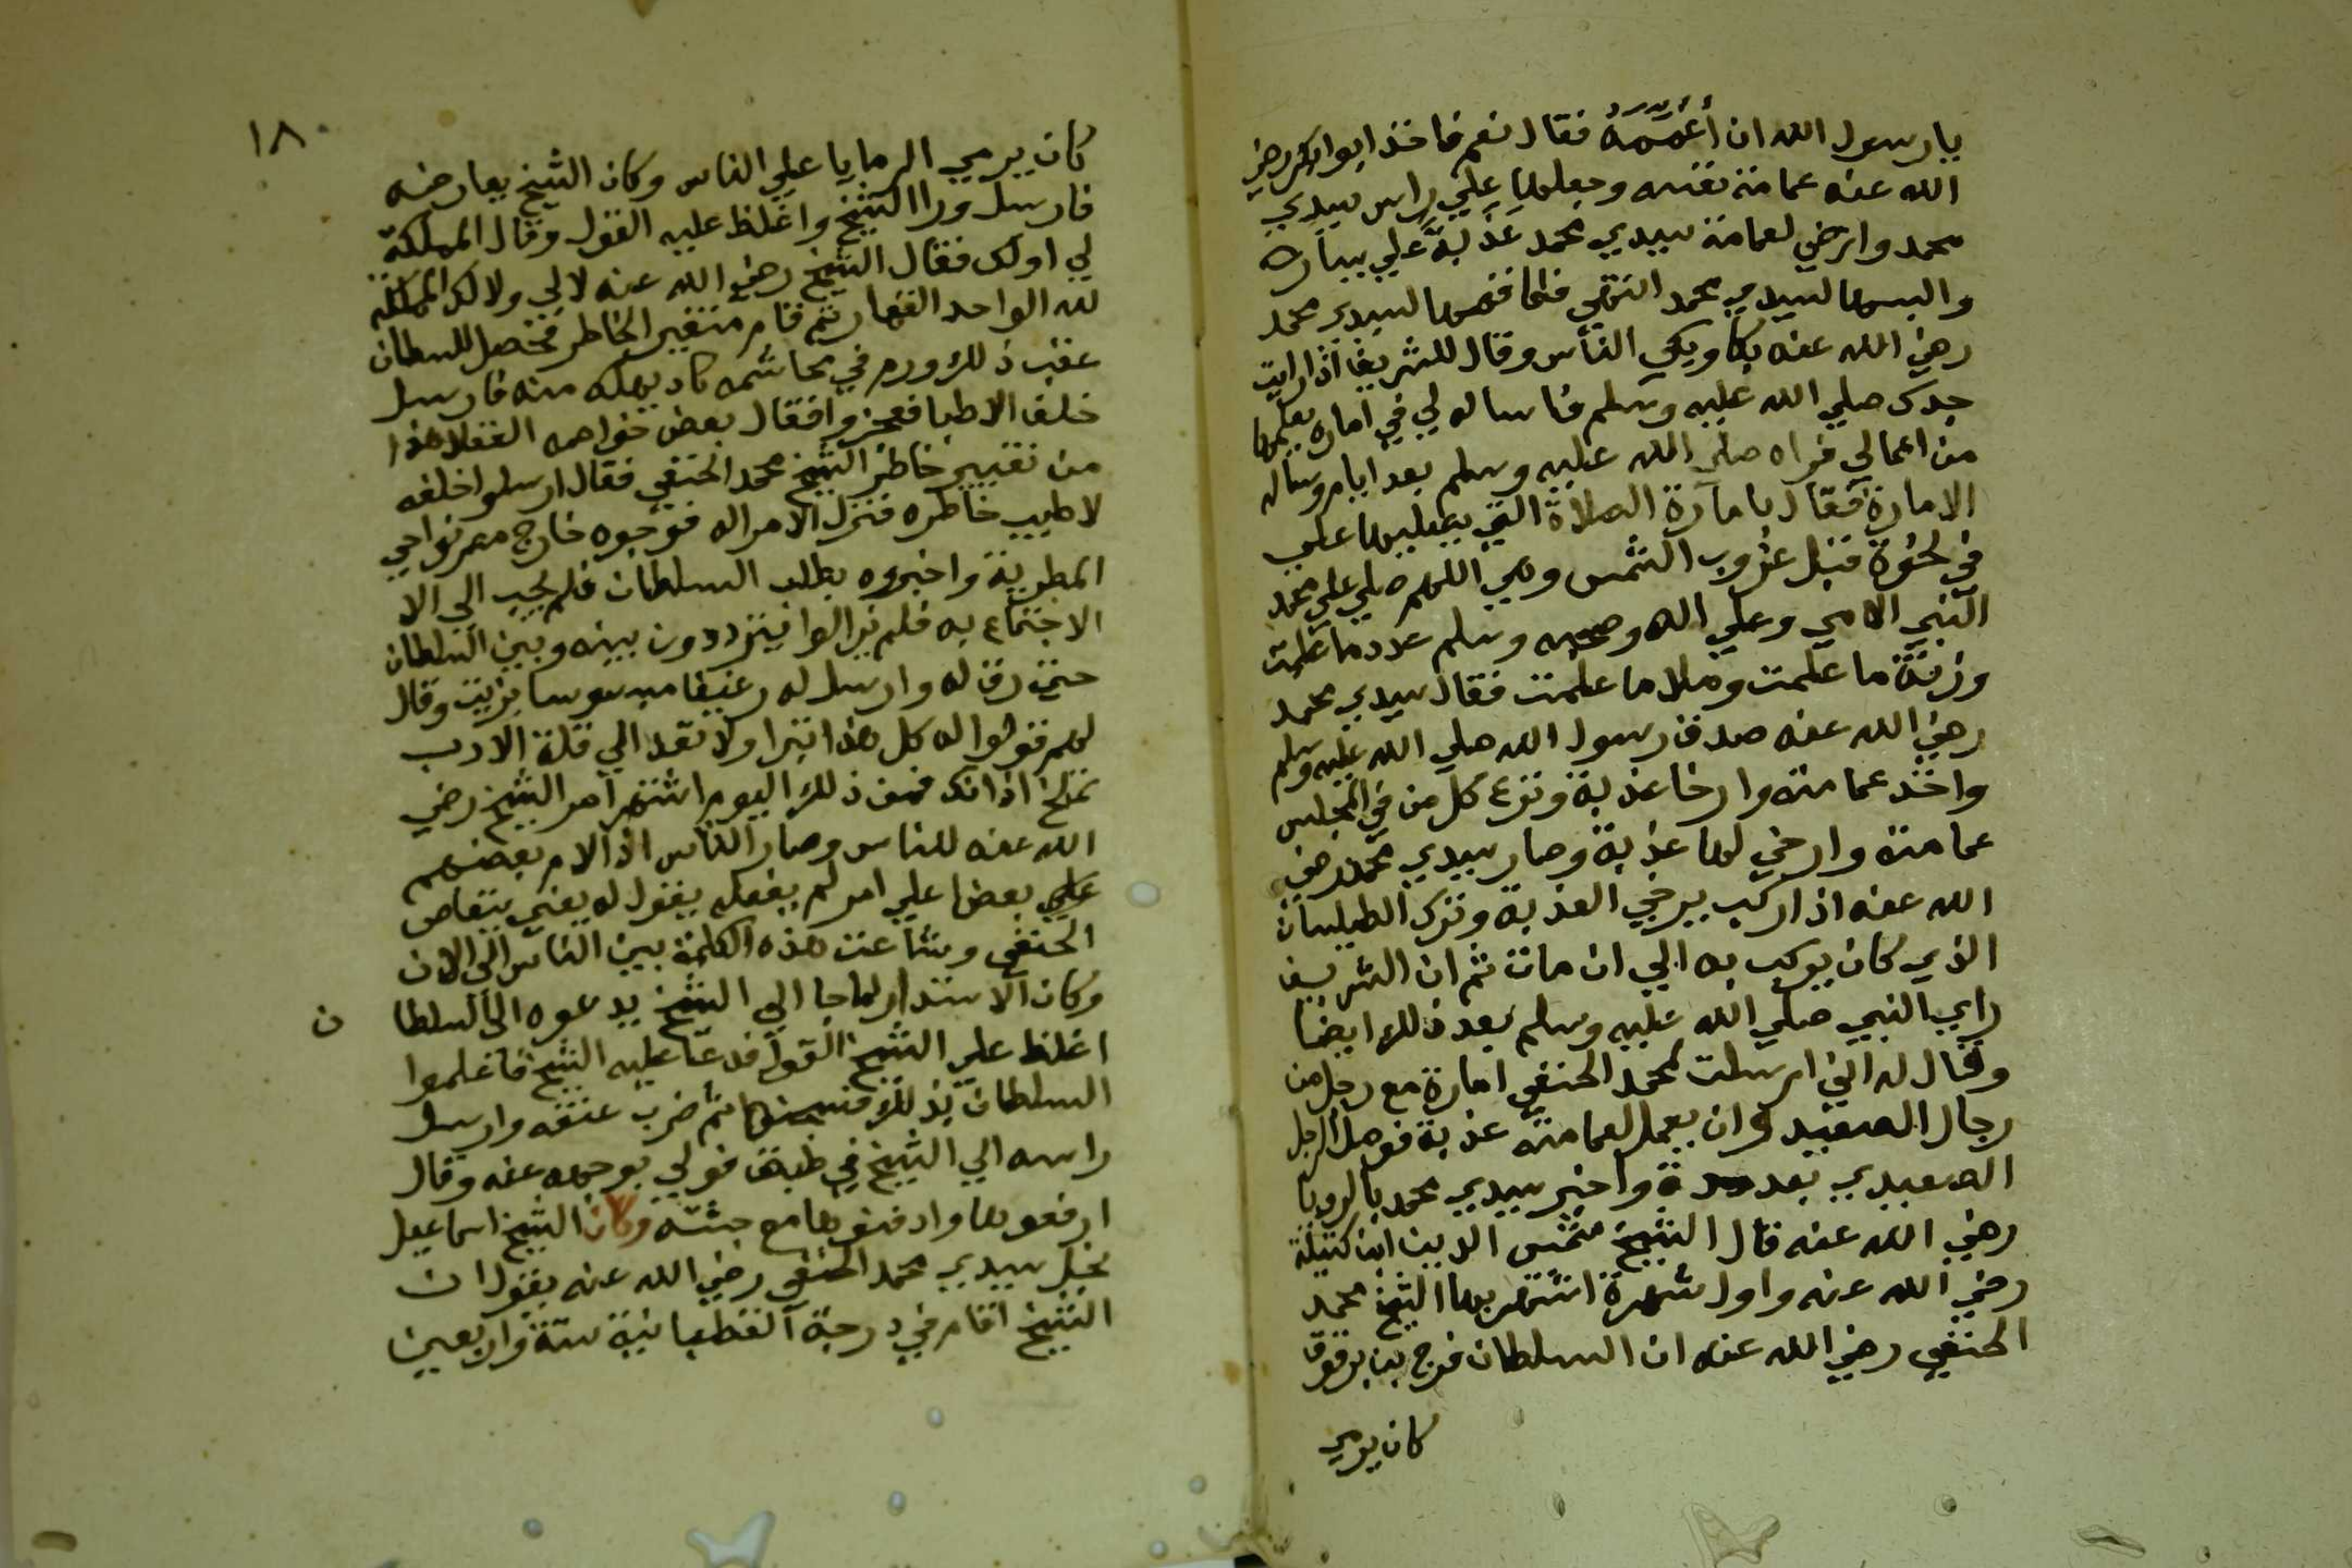 يا رسول الله ان أُعَمِّمَهُ فقال نعم فاخذ ابو بكر رضي
الله عنه عمامة نفسه وجعلها علي راس سيدي
محمد وارخي لعمامة سيدي محمد عَذَبةً علي يساره
والبسها لسيدي محمد انتهي فلما قصها لسيدي محمد
رضي الله عنه بكا وبكي الناس وقال للشريف اذا رايت
جدك صلي الله عليه وسلم فاساله لي في امارة يعلمها
من اعمالي فراه صلي الله عليه وسلم بعد ايام وساله
الامارة فقال بامارة الصلاة التي يصليها علي
في لخلوة قبل غروب الشمس وهي اللهم صلي علي محمد
النبي الامي وعلي اله وصحبه وسلم عدد ما علمت
وزنة ما علمت وملا ما علمت فقال سيدي محمد
رضي الله عنه صدق رسول الله صلي الله عليه وسلم
واخذ عمامته وارخا عذبة ونزع كل من في المجلس
عمامته وارخي لها عذبة وصار سيدي محمد رضي
الله عنه اذا ركب يرخي العذبة وترك الطيلسان
الذي كان يركب به الي ان مات ثم ان الشريف
راي النبي صلي الله عليه وسلم بعد ذلك ايضا
وقال له اني ارسلت لمحمد الحنفي امارة مع رجل من
رجال الصعيد وان يعمل لعمامته عذبة فوصل الرجل
الصعيدي بعد مدة واخبر سيدي محمد بالرويا
رضي الله عنه قال الشيخ شمس الدين ابن كتيلة
رضي الله عنه واول شهرة اشتهر بها الشيخ محمد
الحنفي رضي الله عنه ان السلطان فرج بن برقوق
كان يرمي
١٨
كان يرمي الرمايا علي الناس وكان الشيخ يعارضه
فارسل ورا الشيخ واغلظ عليه القول وقال المملكة
لي او لك فقال الشيخ رضي الله عنه لا لي ولا لك المملكة
لله الواحد القهار ثم قام متغير الخاطر فحصل للسلطان
عقب ذلك ورم في محاشمه كاد يهلك منه فارسل
خلف الاطبا فعجزوا فقال بعض خواصه العقلا هذا
من تغيير خاطر الشيخ محمد الحنفي فقال ارسلوا خلفه
لاطيب خاطره فنزل الامرا له فوجوه خارج مصر نواحي
المطرية واخبروه بطلب السلطان فلم يجب الي الا
الاجتماع به فلم يزالوا يترددون بينه وبين السلطان
حتي رق له وارسل له رغيفا مبسوسا بزيت وقال
لهم قولوا له كل هذا تبرا ولا تعد الي قلة الادب
نملخ اذانك فمن ذلك اليوم اشتهر امر الشيخ رضي
الله عنه للناس وصار الناس اذا لام بعضهم
علي بعض علي امر لم يفعله يقول له يعني يتقاص
الحنفي وشاعت هذه الكلمة بين الناس الي الان
وكان الاستدار لما جا الي الشيخ يدعوه الي السلطا ن
اغلظ علي الشيخ القول فدعا عليه الشيخ فاعلموا
السلطان بذلك ثم ضرب عنقه وارسل
راسه الي الشيخ في طبق فولي بوجهه عنه وقال
ارفعوها وادفنوها مع جثته وكان الشيخ اسماعيل
نجل سيدي محمد الحنفي رضي الله عنه يقول ان
الشيخ اقام في درجة القطبانية ستة واربعين